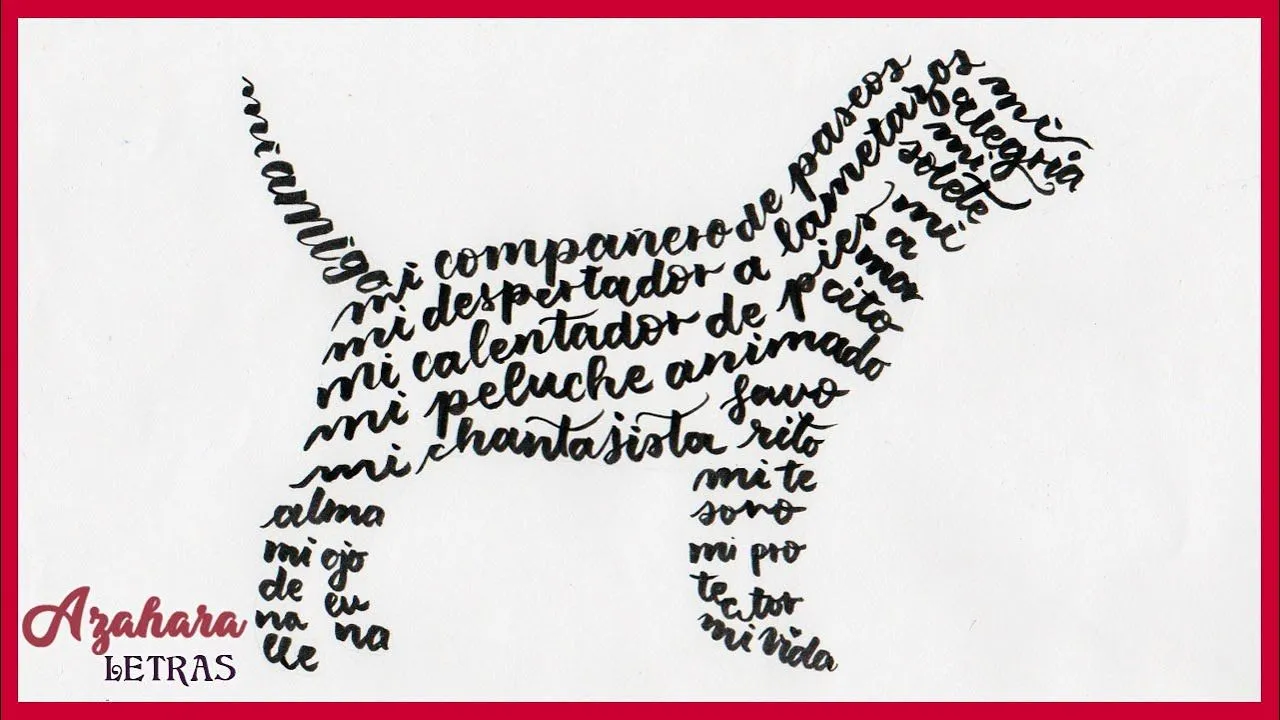 mi amigo
mi compañero de paseos
mi despertador a lametazos
mi calentador de pies
mi peluche animado
mi chantajista favo
rito
mi
alegria
mi
solete
mi
a
mor
cito
alma
mi ojo
de
na
lle
eu
na
mi te
soro
mi pro
tec tor
mi vida
Azahara
LETRAS